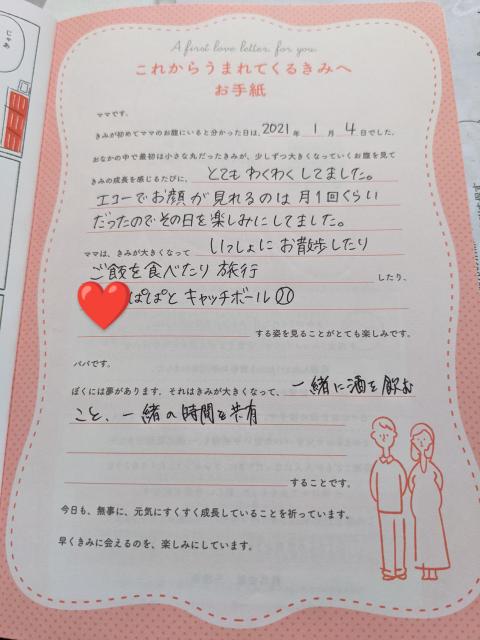 じゃあ
A first love letter, for you.
これからうまれてくるきみへ
お手紙
ママです。
きみが初めてママのお腹にいると分かった日は、2021年 1月 4日でした。
おなかの中で最初は小さな丸だったきみが、少しずつ大きくなっていくお腹を見て
きみの成長を感じるたびに、とてもわくわくしてました。
エコーでお顔が見れるのは月1回くらい
だったのでその日を楽しみにしてました。
ママは、きみが大きくなって いっしょにお散歩したり
ご飯を食べたり旅行 したり、
ぱぱとキャッチボール
する姿を見ることがとても楽しみです。
パパです。
ぼくには夢があります。それはきみが大きくなって、一緒に酒を飲む
こと、一緒の時間を共有
することです。
今日も、無事に、元気にすくすく成長していることを祈っています。
早くきみに会えるのを、楽しみにしています。